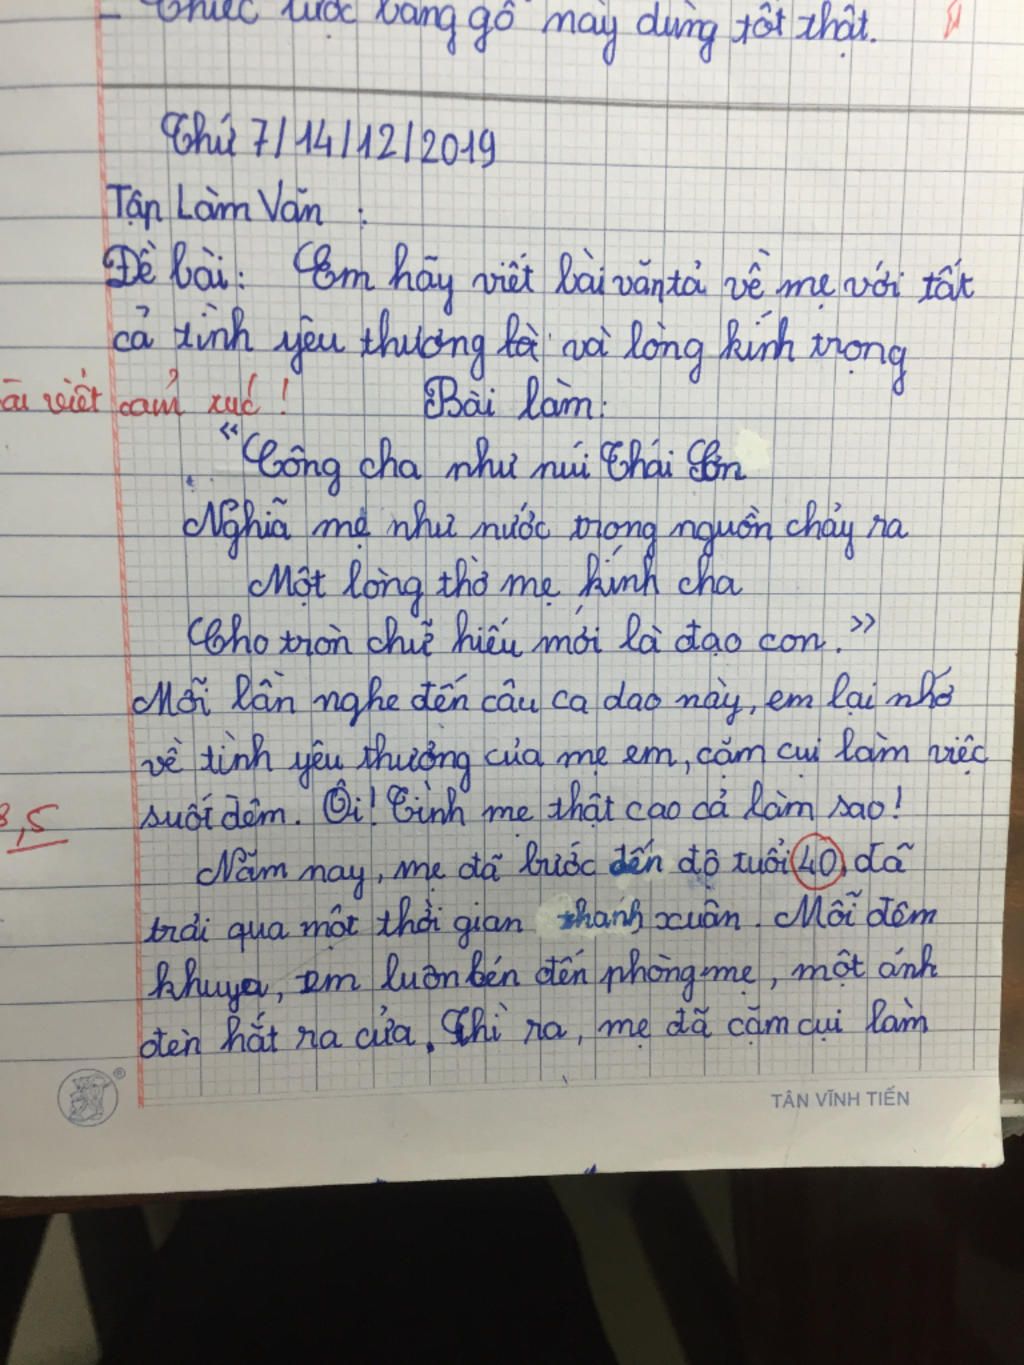 - Chiếc lược bằng gỗ này dùng tốt thật.
Thứ 7/14/12/2019
Tập Làm Văn :
Đề bài: Em hãy viết bài văn tả về mẹ với tất
cả tình yêu thương và lòng kính trọng
ài viết cảm xúc! Bài làm:
"Công cha như núi Thái Sơn
Nghiã mẹ như nước trong nguồn chảy ra
Một lòng thờ mẹ kính cha
Cho tròn chữ hiếu mới là đạo con."
Mỗi lần nghe đến câu ca dao này, em lại nhớ
về tình yêu thưởng của mẹ em, cặm cụi làm việc
suốt đêm. Ôi! Tình mẹ thật cao cả làm sao!
8,5
Năm nay, mẹ đã bước đến độ tuổi 40, đã
trải qua một thời gian thanh xuân. Mỗi đêm
khuya, em luôn bén đến phòng mẹ, một ánh
đèn hắt ra cửa. Thì ra, mẹ đã cặm cụi làm
TÂN VĨNH TIẾN